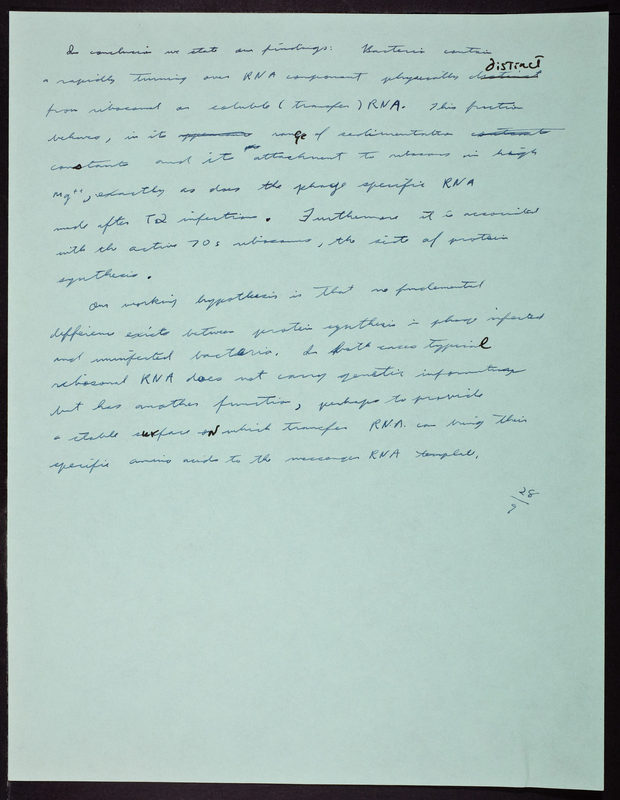 In conclusion we state our findings: Bacteria contain
a rapidly turning over RNA component physically distinct distinct
from ribosomal or soluble (transfer) RNA. This fraction
behaves, in its range of sedimentation
constants and its attachment to ribosomes in high
Mg++, exactly as does the phage specific RNA
made after T2 infection. Furthermore it is associated
with the active 70s ribosomes, the site of protein
synthesis.
Our working hypothesis is that no fundamental
difference exists between protein synthesis in phage infected
and uninfected bacteria. In both cases typical
ribosomal RNA does not carry genetic information
but has another function, perhaps to provide
a stable surface on which transfer RNA can bring their
specific amino acids to the messenger RNA template.
28
9